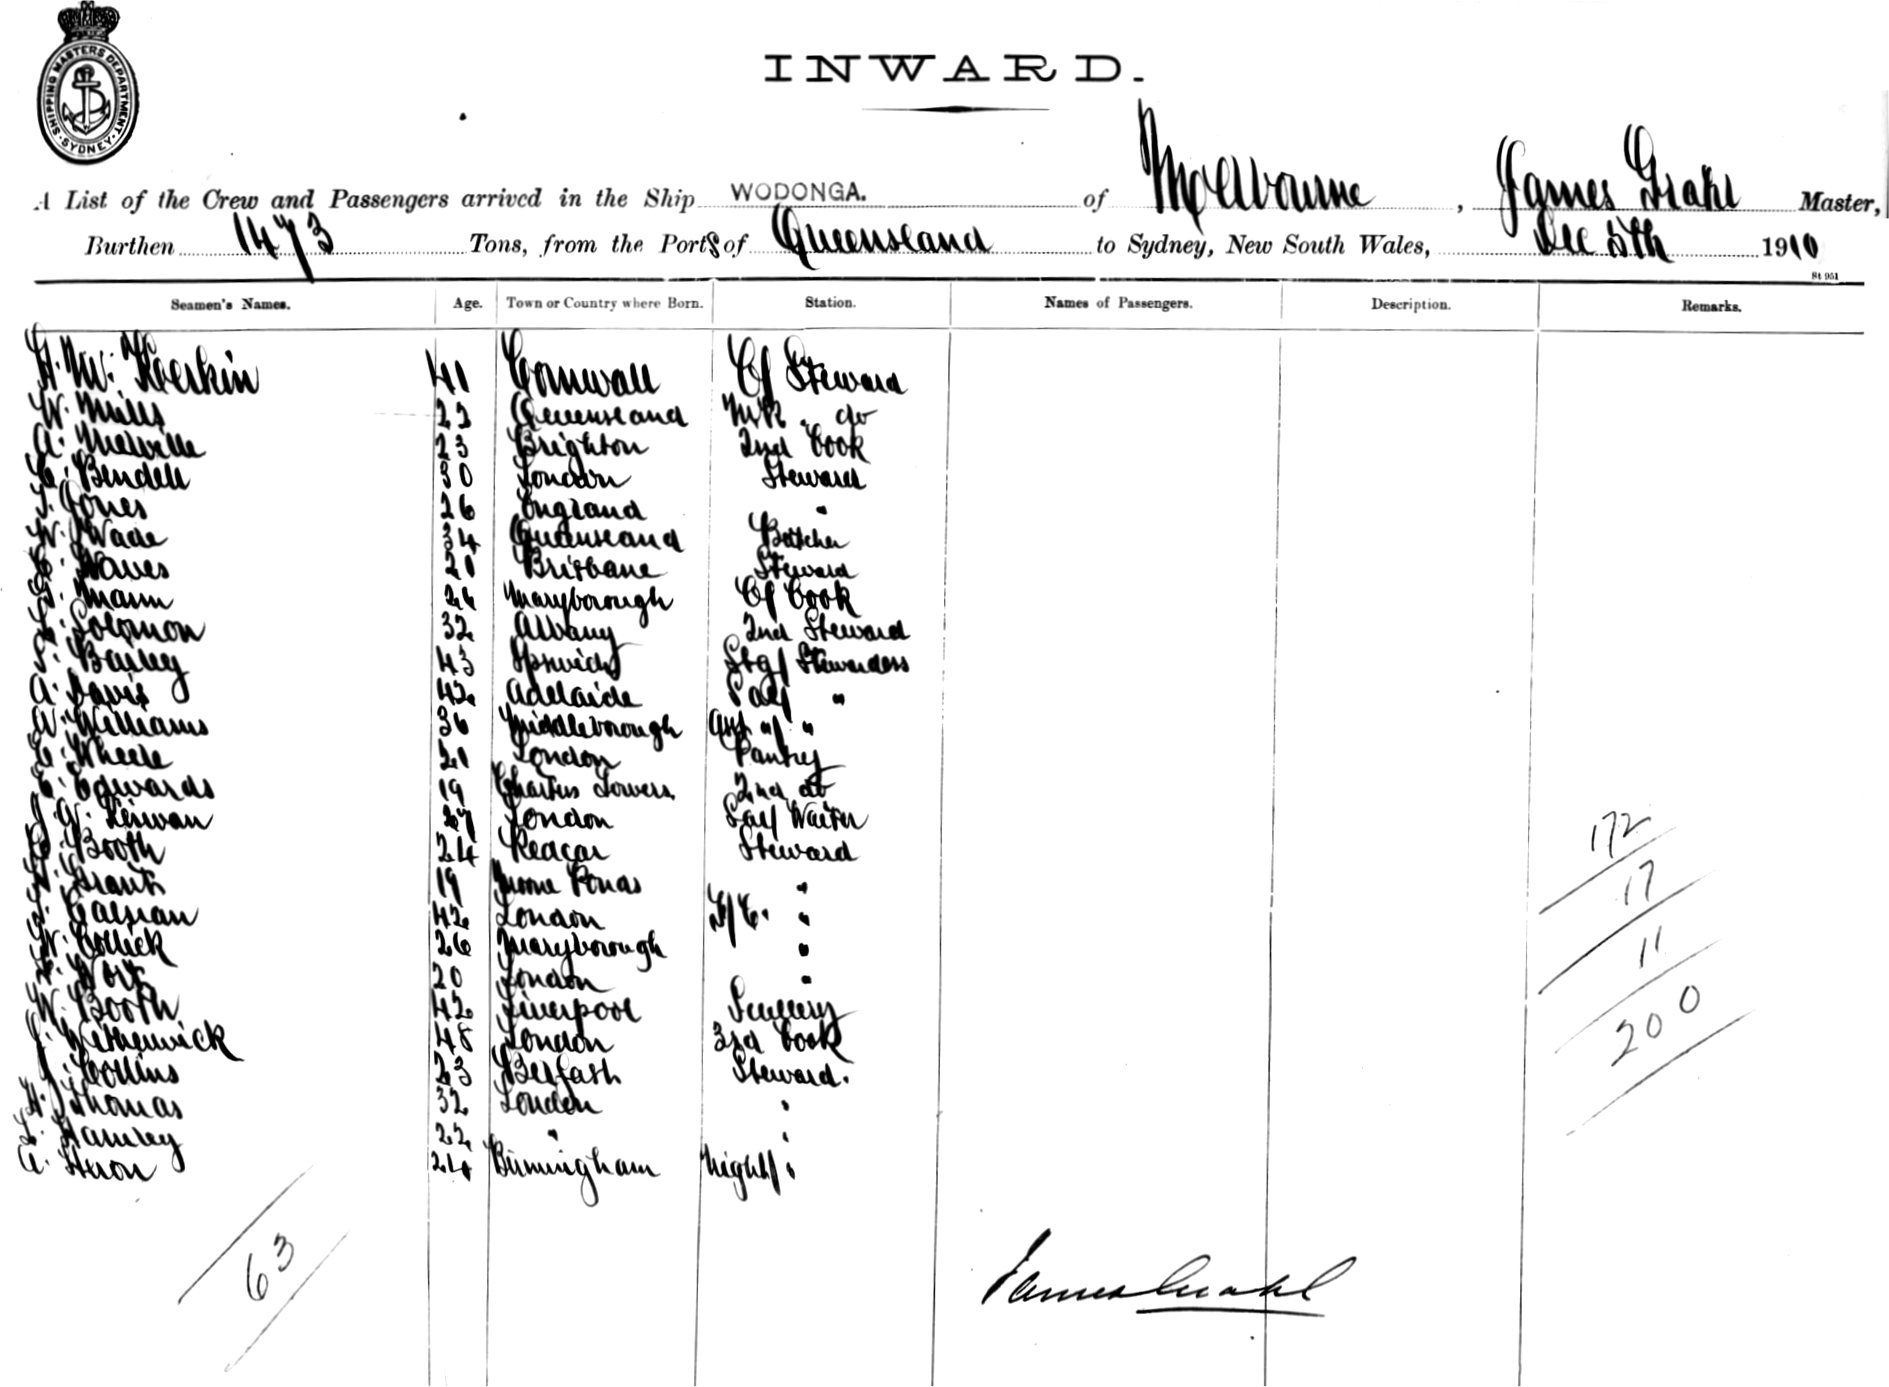 SHIPPING MASTERS DEPARTMENT SYDNEY
INWARD.
A List of the Crew and Passengers arrived in the Ship WODONGA. of Melbourne, James Grahl Master,
Burthen 1473 Tons, from the Ports of Queensland to Sydney, New South Wales, Dec 5th 1910
St 951
Seamen's Names. Age. Town or Country where Born. Station. Names of Passengers. Description. Remarks.
H. W. Hoerkin 41 Cornwall Cf Steward
W. Mills 22 Queensland do
A. Melville 23 Brighton 2nd Cook
C. Bendell 30 London Steward
Jones 26 England "
W. Wade 34 Queensland Butcher
Hawes 20 Brisbane Steward
Mann 26 Maryborough Cf Cook
Solomon 32 Albany 2nd Steward
Bailey 43 Ipswich Stg/ Stewardess
A. Davis 42 Adelaide "
W. Williams 36 Middleborough "
Wheele 21 London Pantry
E. Edwards 19 Charters Towers 2nd do
J. W. Kirwan 27 London Waiter
Booth 24 Redcar Steward
Grant 19 Moone Ponds "
42 London "
W. Collick 26 Maryborough "
20 London "
W. Booth 42 Liverpool Scullery
Witherwick 48 London 3rd Cook
J. Collins 23 Belfast Steward.
H. Thomas 32 London "
22 " "
A. Heron 24 Birmingham Night/ "
172
17
11
200
63
James Grahl